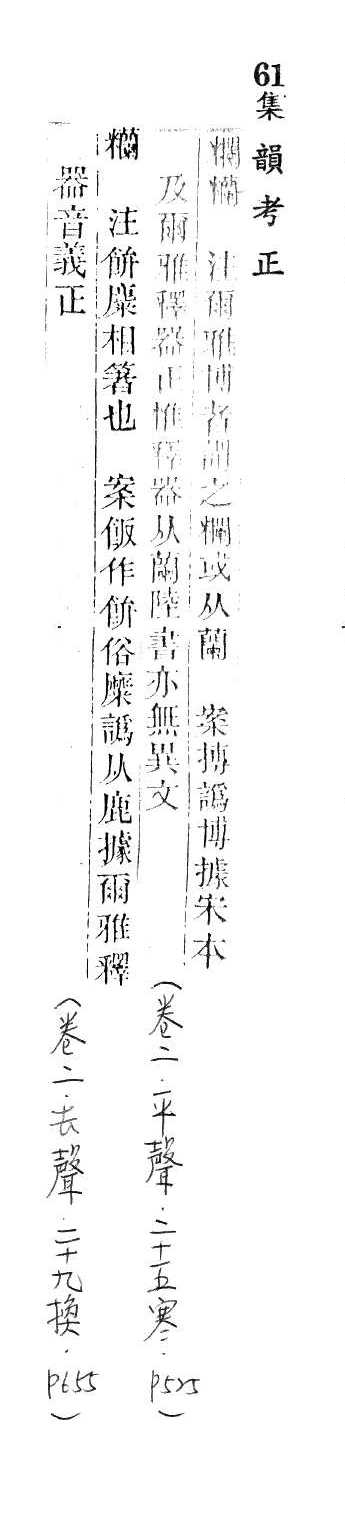 61集韻考正
糷𥽬 注爾雅博者謂之糷或从蘭 案摶譌博據宋本
及爾雅釋器正惟釋器从蘭陸書亦無異文
(卷二.平聲.二十五寒二.p525)
糷 注餅麋相箸也 案飯作餅俗糜譌从鹿據爾雅釋
器音義正
(卷二.去聲.二十九換.p655)